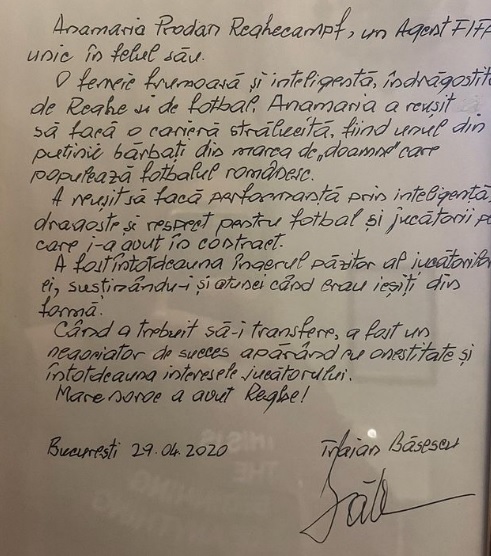 Anamaria Prodan Reghecampf, un Agent FIFA
unic în felul său.
O femeie frumoasă și inteligentă, îndrăgostit
de Reghe și de fotbal, Anamaria a reușit
să facă o carieră strălucită, fiind unul din
puținii bărbați din marea de „doamne” care
populează fotbalul românesc.
A reușit să facă performanță prin inteligență,
dragoste și respect pentru fotbal și jucătorii pe
care i-a avut în contract.
A fost întotdeauna îngerul păzitor al jucătorilor
ei, susținându-i și atunci când erau ieșiți din
formă.
Când a trebuit să-i transfere, a fost un
negociator de succes apărând cu onestitate și
întotdeauna interesele jucătorului.
Mare noroc a avut Reghe!
București 29.04.2020 Traian Băsescu